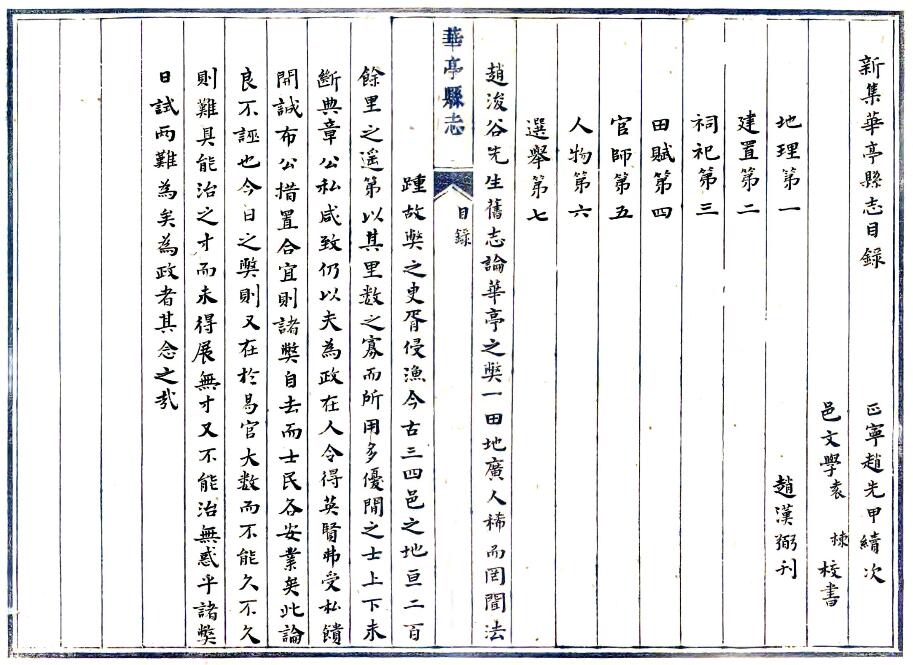 新集華亭縣志目録
正寧趙先甲續次
邑文學袁 棟校書
地理第一
趙漢弼刋
建置第二
祠祀第三
田賦第四
官師第五
人物第六
選舉第七
趙浚谷先生舊志論華亭之獘一田地廣人稀而罔聞法
華亭縣志
目録
踵故獘之吏胥侵漁今古三四邑之地亘二百
餘里之遥第以其里数之寡而所用多優閒之士上下未
斷典章公私咸致仍以夫為政在人令得英賢弗受私饋
開誠布公措置合宜則諸獘自去而士民各安業矣此論
良不誣也今日之獘則又在於易官大数而不能久不久
則難具能治之才而未得展無才又不能治無惑乎諸獘
日試両難為矣為政者其念之哉